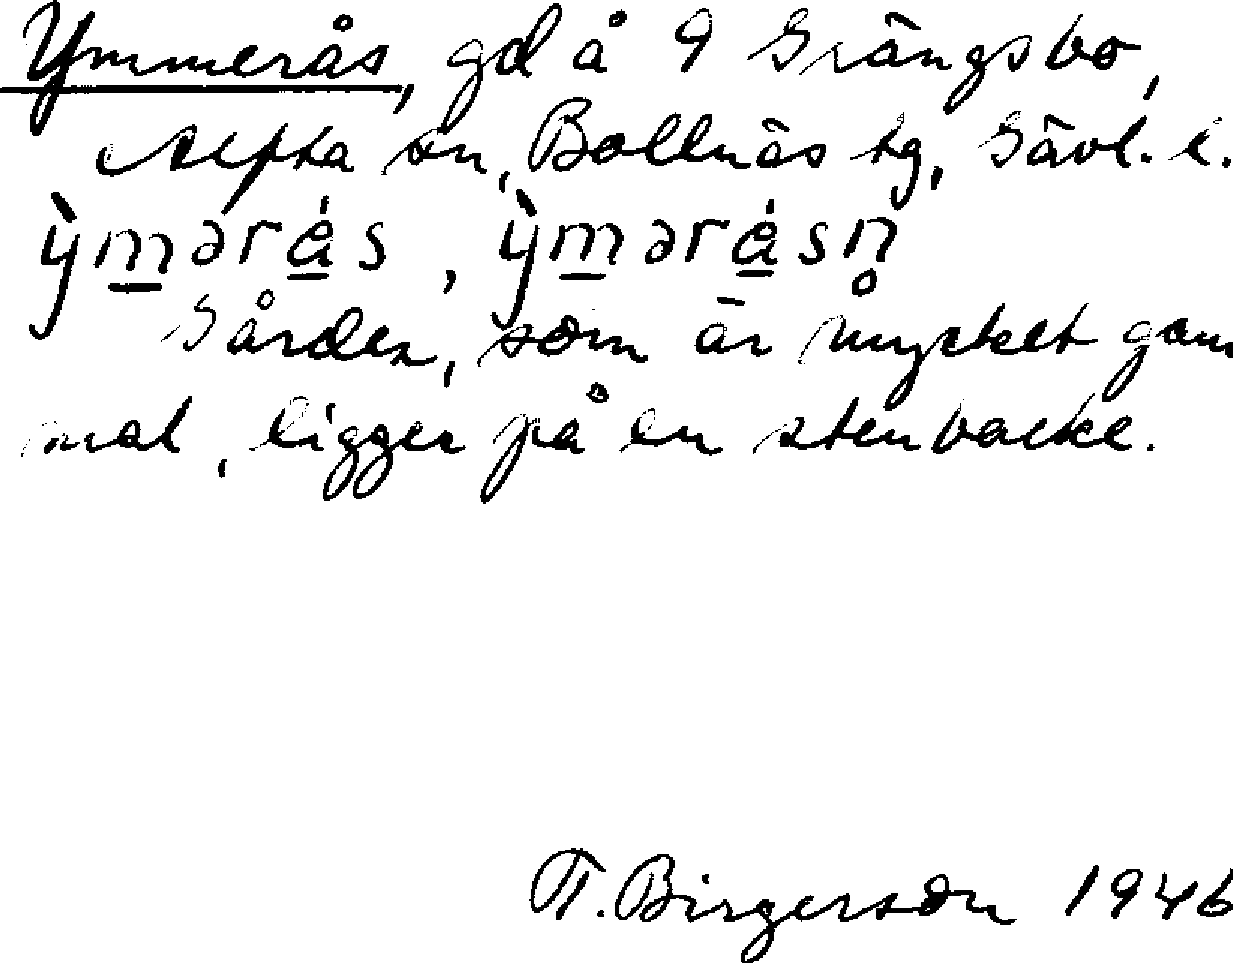 Ymmerås, gd å 9 Grängsbo,
Alfta sn, Bollnäs tg, Gävl. l.
ỳm̲ərá̲s, ỳm̲ərá̲sn̥
Gården, som är mycket gam
mal, ligger på en stenbacke.
T. Birgerson 1946